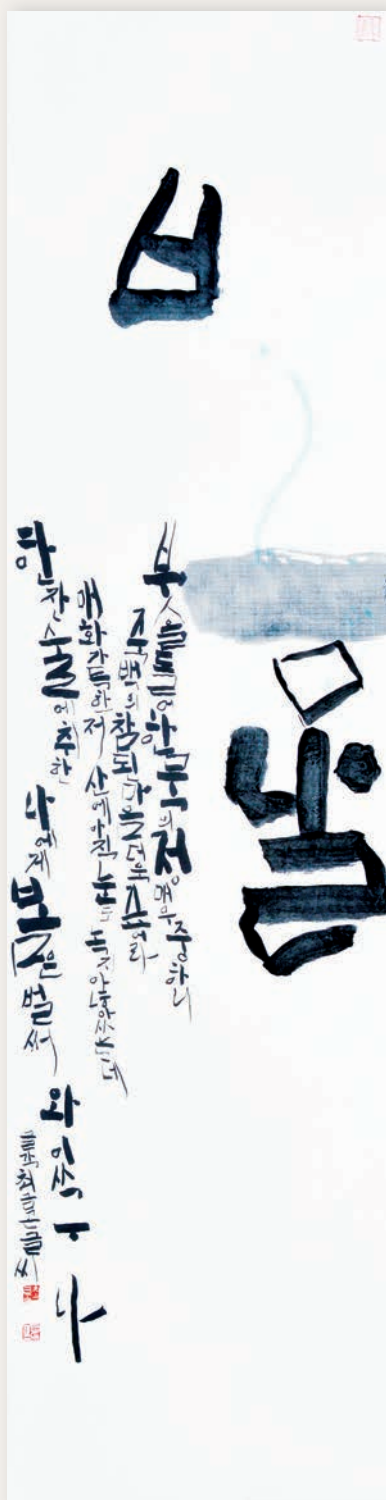 붓을 들어 한묵의 정 매우 중하니
죽백의 참된 마음 더욱
매화 가득한 저 산에 아직 눈도 녹지 않았는데
한 잔 술에 취한 나에게 봄은 벌써 와 있구나
글씨